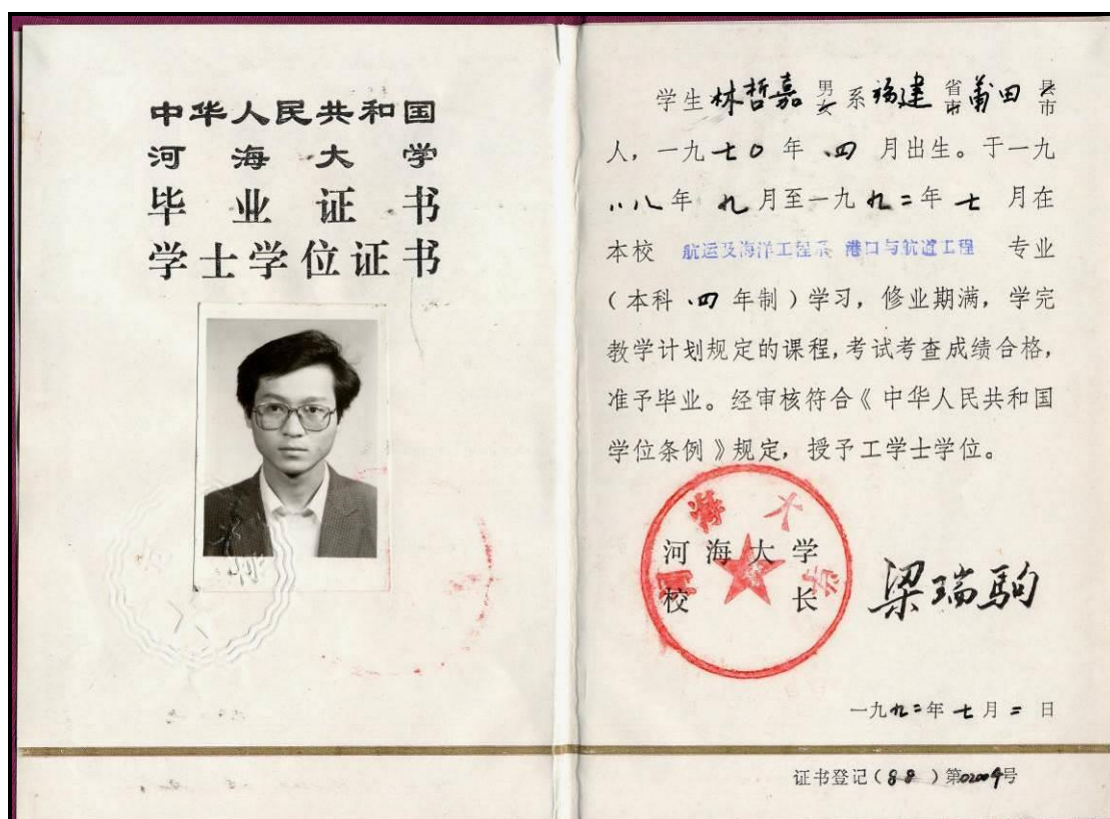 中华人民共和国
河海大学
毕业证书
学士学位证书
学生林哲嘉 男女 系福建 省市 莆田 县市
人，一九七〇年四月出生。于一九
八八年九月至一九九二年七月在
本校 航运及海洋工程系 港口与航道工程 专业
（本科四年制）学习，修业期满，学完
教学计划规定的课程，考试考查成绩合格，
准予毕业。经审核符合《中华人民共和国
学位条例》规定，授予工学士学位。
河海大学
河海大学
校长 梁瑞驹
一九九二年七月二日
证书登记（88）第02009号